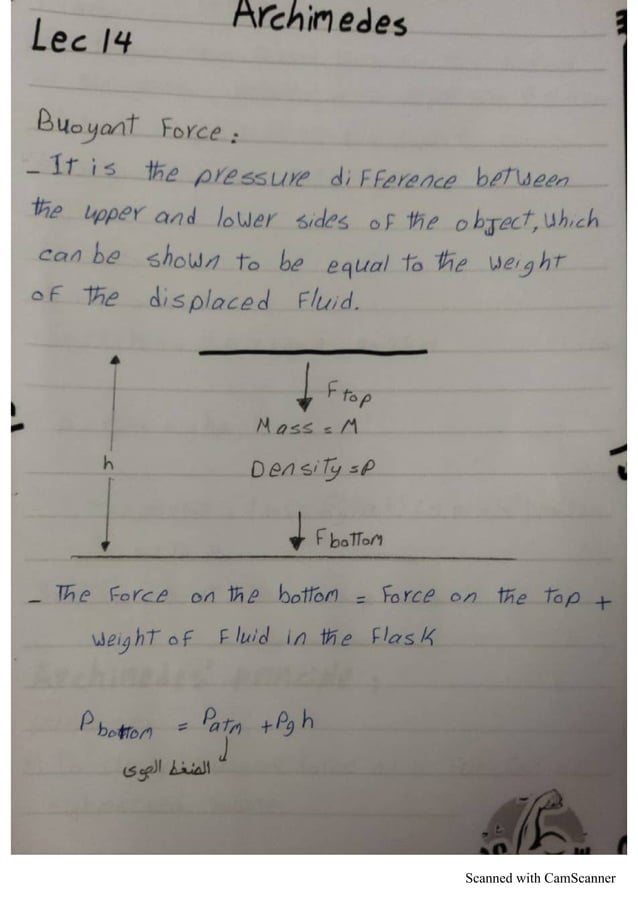 Archimedes
Lec 14
Buoyant Force:
- It is the pressure difference between
the upper and lower sides of the object, which
can be shown to be equal to the weight
of the displaced Fluid.
F top
Mass = M
h
Density = ρ
F bottom
- The Force on the bottom = Force on the top +
weight of Fluid in the Flask
P bottom = Patm + ρgh
الضغط الجوى
Scanned with CamScanner